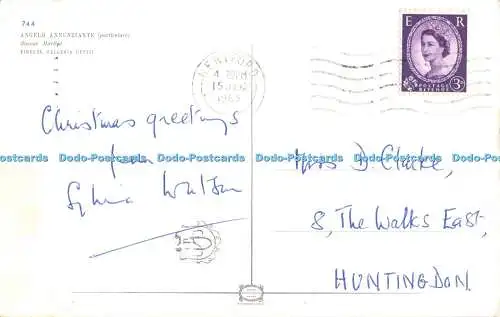 744
ANGELO ANNUNZIANTE (particolare)
Simone Martini
FIRENZE, GALLERIA UFFIZI
HERTFORD
15 DEC
1965
E R
POSTAGE
REVENUE
3D
Christmas greetings
from
Sylvia Watson
Mrs D. Clarke,
8, The Walks East,
HUNTINGDON.
Dodo-Postcards Dodo-Postcards Dodo-Postcards Dodo-Postcards Dodo-Postcards